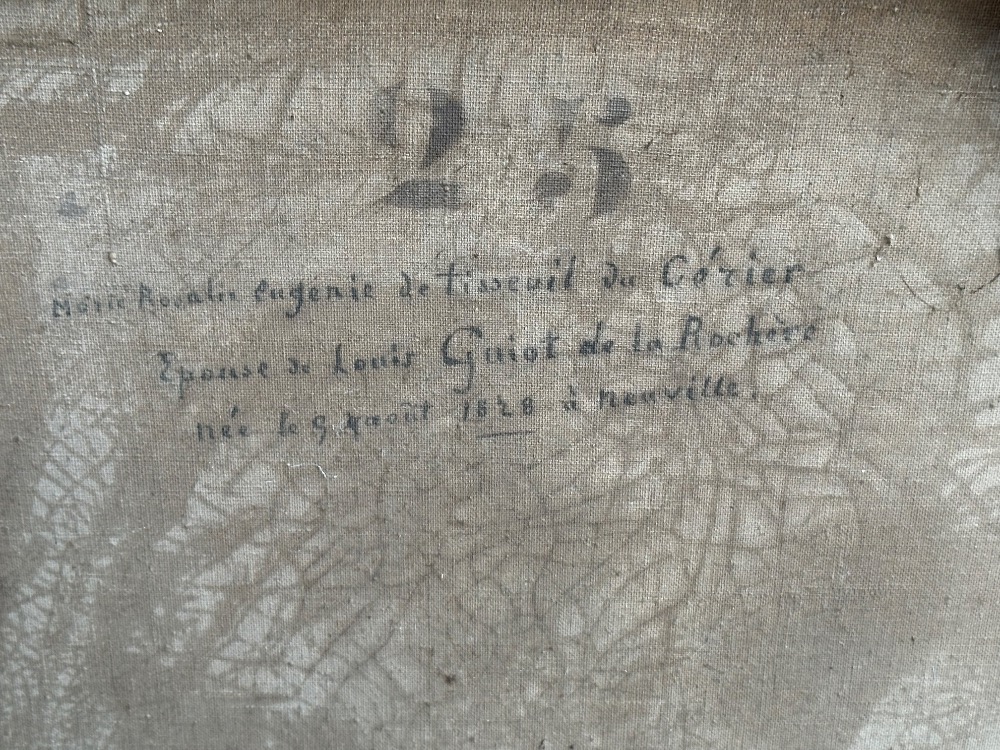 25
Marie Rosalie Eugénie de Tisseuil du Cérier
Epouse de Louis Guiot de la Rochère
née le 9 août 1828 à Neuville.